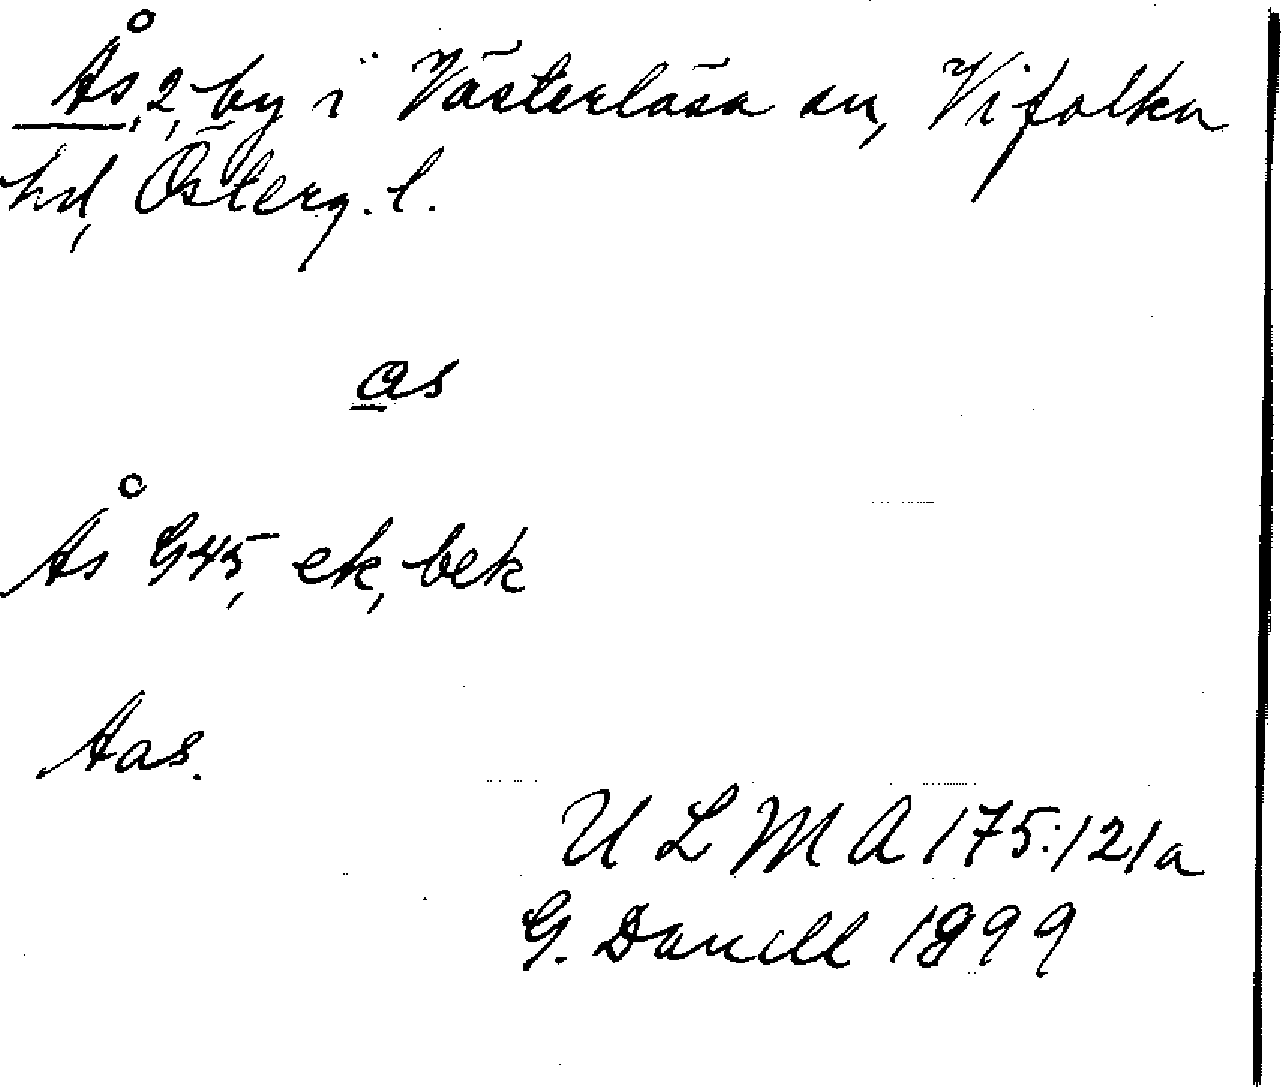 Ås, 2, by i Västerlösa sn, Vifolka
hd, Österg. l.
as
Ås G45, ek, bek
Aas.
ULMA 175:121a
G. Danell 1899